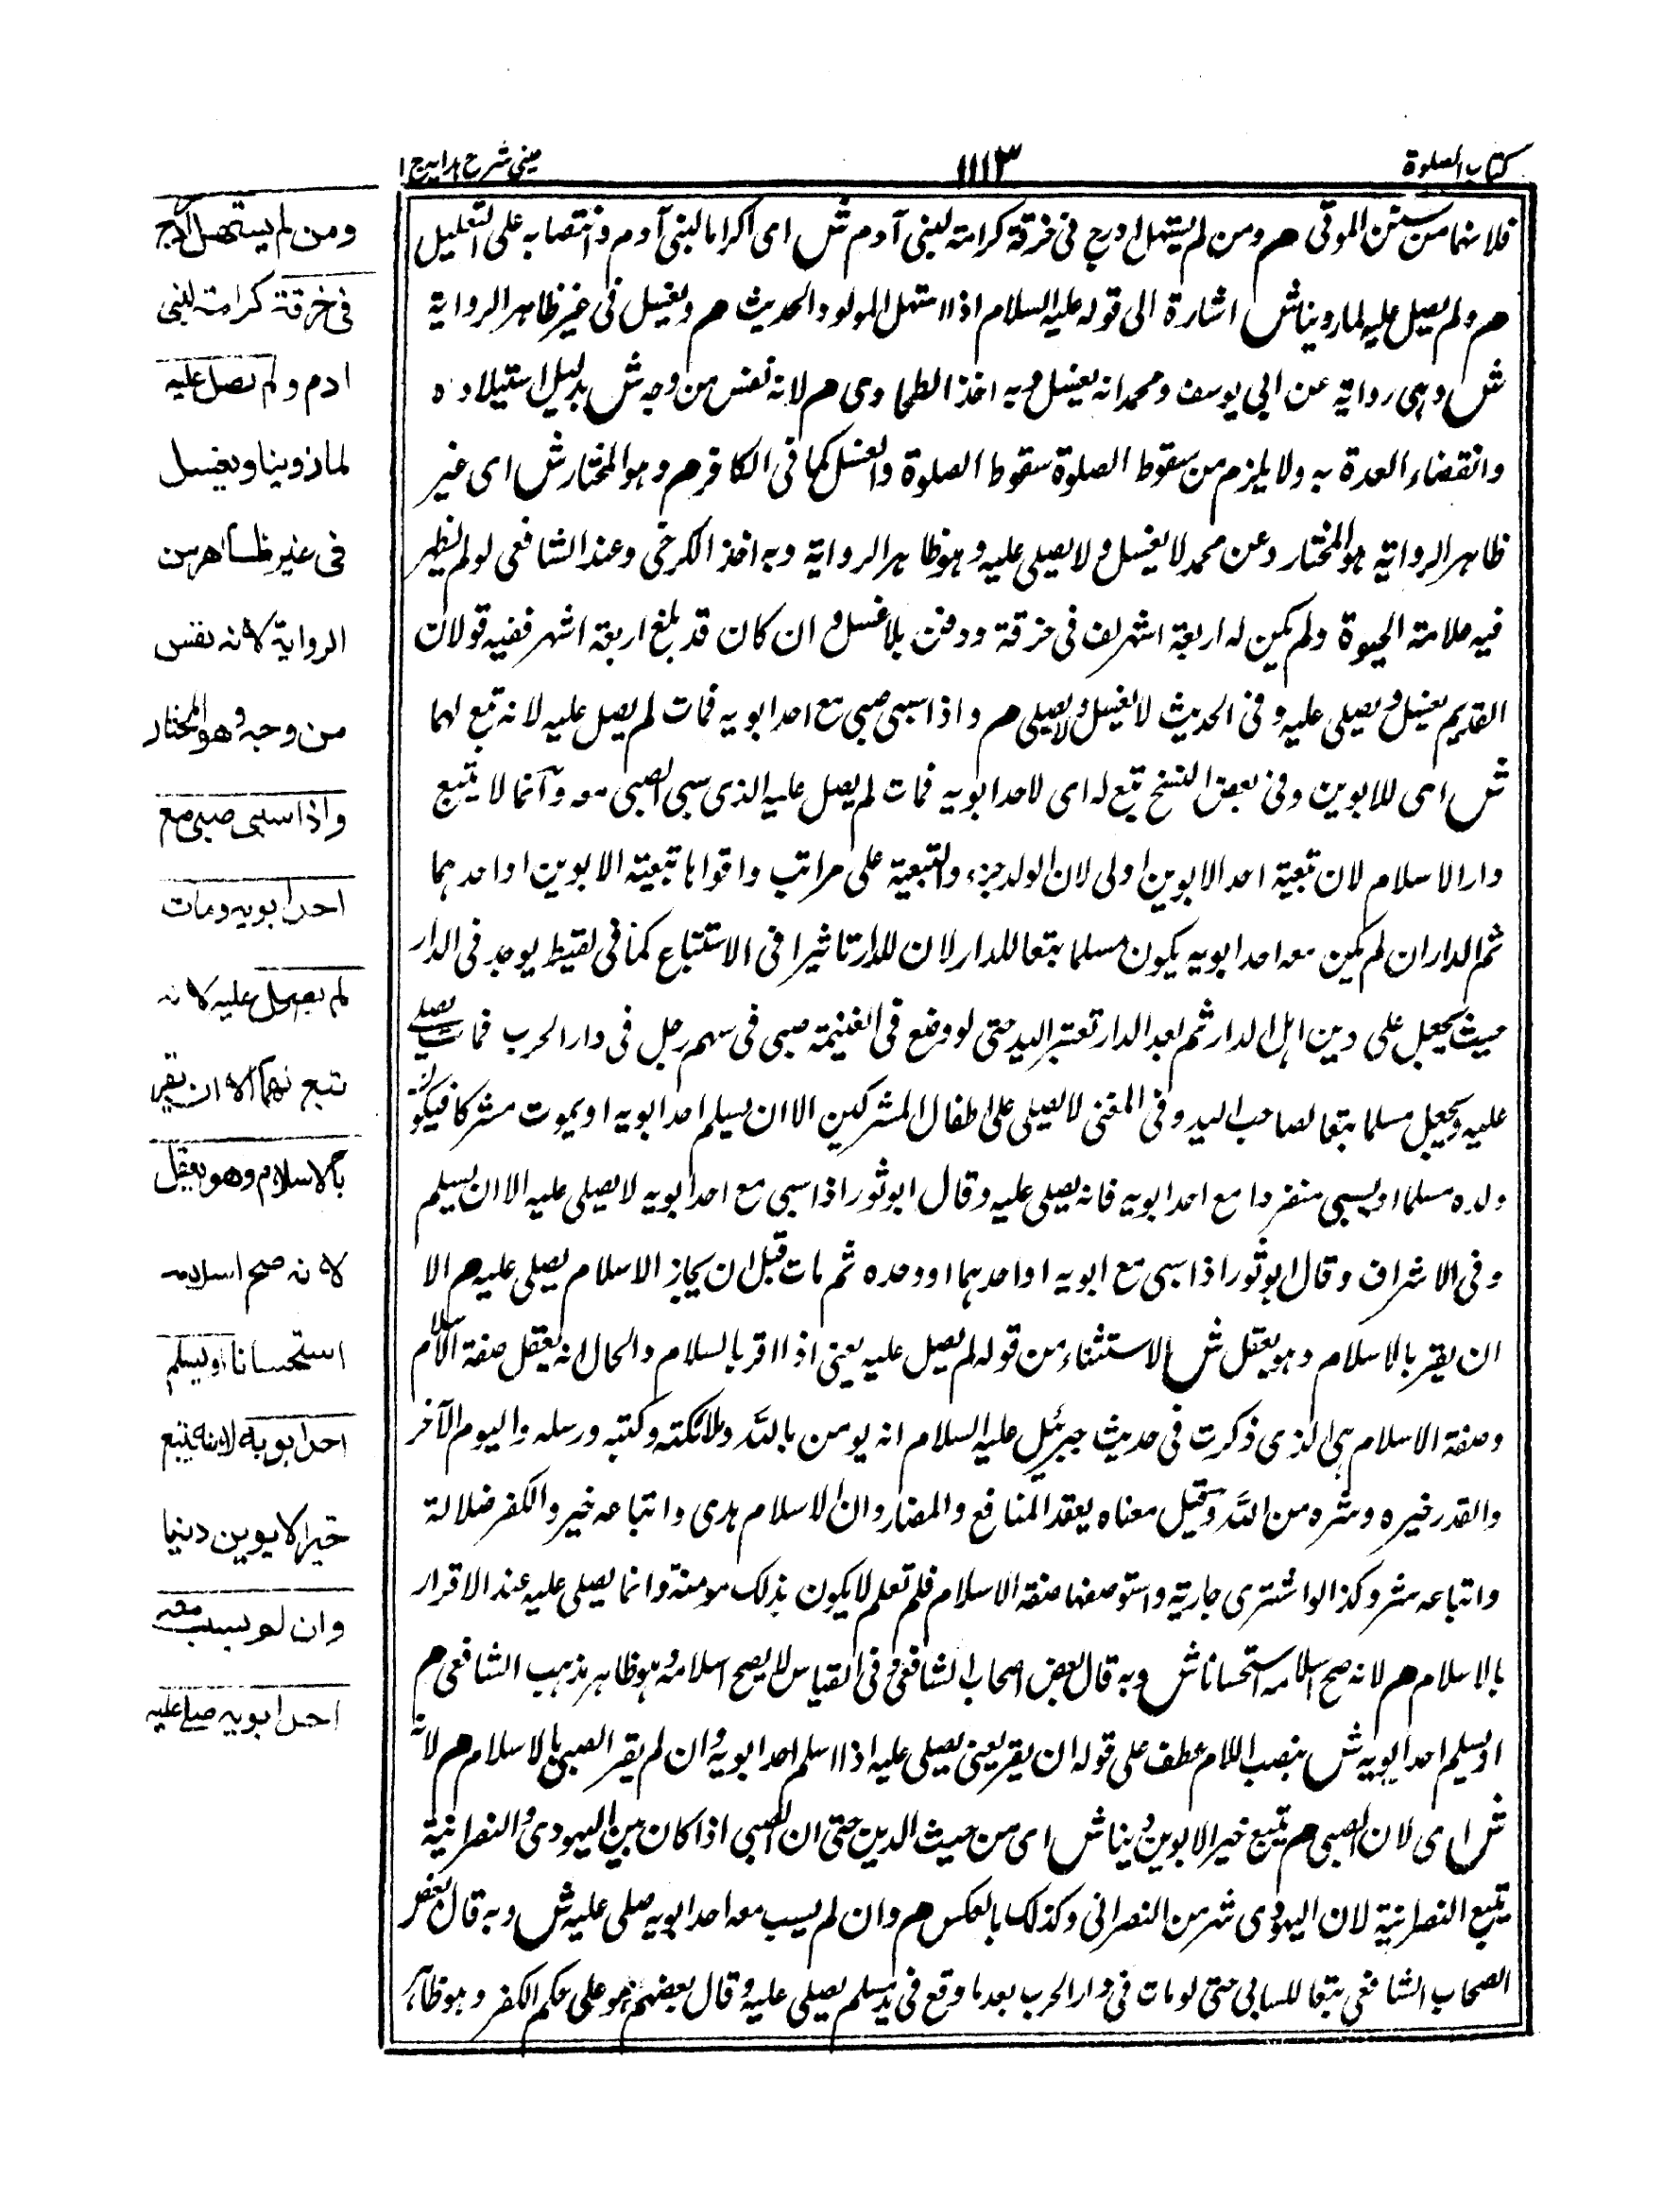 كتاب الصلوة
١١١٣
عيني شرح هدايه ج ١
فلانها من سنن الموتى هم ومن لم يستهل ادرج في خرقة كرامة لبني آدم ش اى اكراما لبني آدم وانتصابه على التعليل
هم ولم يصل عليه لما روينا ش اشارة الى قوله عليه السلام اذا استهل المولود الحديث هم ويغسل في غير ظاهر الرواية
ش وهي رواية عن ابي يوسف ومحمد انه يغسل وبه اخذ الطحاوى هم لانه نفس من وجه ش بدليل استيلاده
وانقضاء العدة به ولا يلزم من سقوط الصلوة سقوط الصلوة والغسل كما في الكافر هم وهو المختار ش اى غير
ظاهر الرواية هو المختار وعن محمد لا يغسل ولا يصلى عليه وهو ظاهر الرواية وبه اخذ الكرخى وعند الشافعى لو لم يظهر
فيه علامة الحيوة ولم يكن له اربعة اشهر لف في خرقة ودفن بلا غسل وان كان قد بلغ اربعة اشهر ففيه قولان
القديم يغسل ويصلى عليه وفى الحديث لا يغسل ولا يصلى هم واذا سبى صبى مع احد ابويه فمات لم يصل عليه لانه تبع لهما
ش اى للابوين وفى بعض النسخ تبع له اى لاحد ابويه فمات لم يصل عليه الذى سبى الصبى معه وانما لا يتبع
دار الاسلام لان تبعية احد الابوين اولى لان الولد جزء والتبعية على مراتب واقواها تبعية الابوين او احدهما
ثم الدار ان لم يكن معه احد ابويه يكون مسلما تبعا للدار لان للدار تاثيرا في الاستتباع كما في لقيط يوجد في الدار
حيث يجعل على دين اهل الدار ثم بعد الدار تعتبر اليد حتى لو وقع فى الغنيمة صبى فى سهم رجل فى دار الحرب فمات يصلى
عليه ويجعل مسلما تبعا لصاحب اليد وفى المغنى لا يصلى على اطفال المشركين الا ان يسلم احد ابويه او يموت مشركا فيكون
ولده مسلما او يسبى منفردا مع احد ابويه فانه يصلى عليه وقال ابو ثور اذا سبى مع احد ابويه لا يصلى عليه الا ان يسلم
وفى الاشراف وقال ابو ثور اذا سبى مع ابويه او احدهما او وحده ثم مات قبل ان يجاز الاسلام يصلى عليه هم الا
ان يقر بالاسلام وهو يعقل ش الاستثناء من قوله لم يصل عليه يعنى اذا اقر بالسلام والحال انه يعقل صفة الاسلام
وصفة الاسلام هى الذى ذكرت فى حديث جبرئيل عليه السلام انه يومن بالله وملائكته وكتبه ورسله واليوم الآخر
والقدر خيره وشره من الله وقيل معناه يعقد المنافع والمضار وان الاسلام هدى واتباعه خير والكفر ضلالة
واتباعه شر وكذا لو اشترى جارية واستوصفها صفة الاسلام فلم تعلم لا يكون بذلك مومنة وانما يصلى عليه عند الاقرار
بالاسلام هم لانه صح اسلامه استحسانا ش وبه قال بعض اصحاب الشافعى وفى القياس لا يصح اسلامه وهو ظاهر مذهب الشافعى هم
او يسلم احد ابويه ش بنصب اللام عطف على قوله ان يقر يعنى يصلى عليه اذا اسلم احد ابويه وان لم يقر الصبى بالاسلام هم لانه
ش اى لان الصبى هم يتبع خير الابوين دينا ش اى من حيث الدين حتى ان الصبى اذا كان بين اليهودى والنصرانية
يتبع النصرانية لان اليهودى شر من النصرانى وكذلك بالعكس هم وان لم يسب معه احد ابويه صلى عليه ش وبه قال بعض
اصحاب الشافعى تبعا للسابى حتى لو مات فى دار الحرب بعد ما وقع فى يد مسلم يصلى عليه وقال بعضهم هو على حكم الكفر وهو ظاهر
ومن لم يستهل ادرج
فى خرقة كرامة لبنى
ادم ولم يصل عليه
لما روينا ويغسل
فى غير ظاهر من
الرواية لانه نفس
من وجه وهو المختار
واذا سبى صبى مع
احد ابويه ومات
لم يصل عليه لانه
تبع لهما الا ان يقر
بالاسلام وهو يعقل
لانه صح اسلامه
استحسانا او يسلم
احد ابويه لانه يتبع
خير الابوين دينا
وان لم يسب معه
احد ابويه صلى عليه